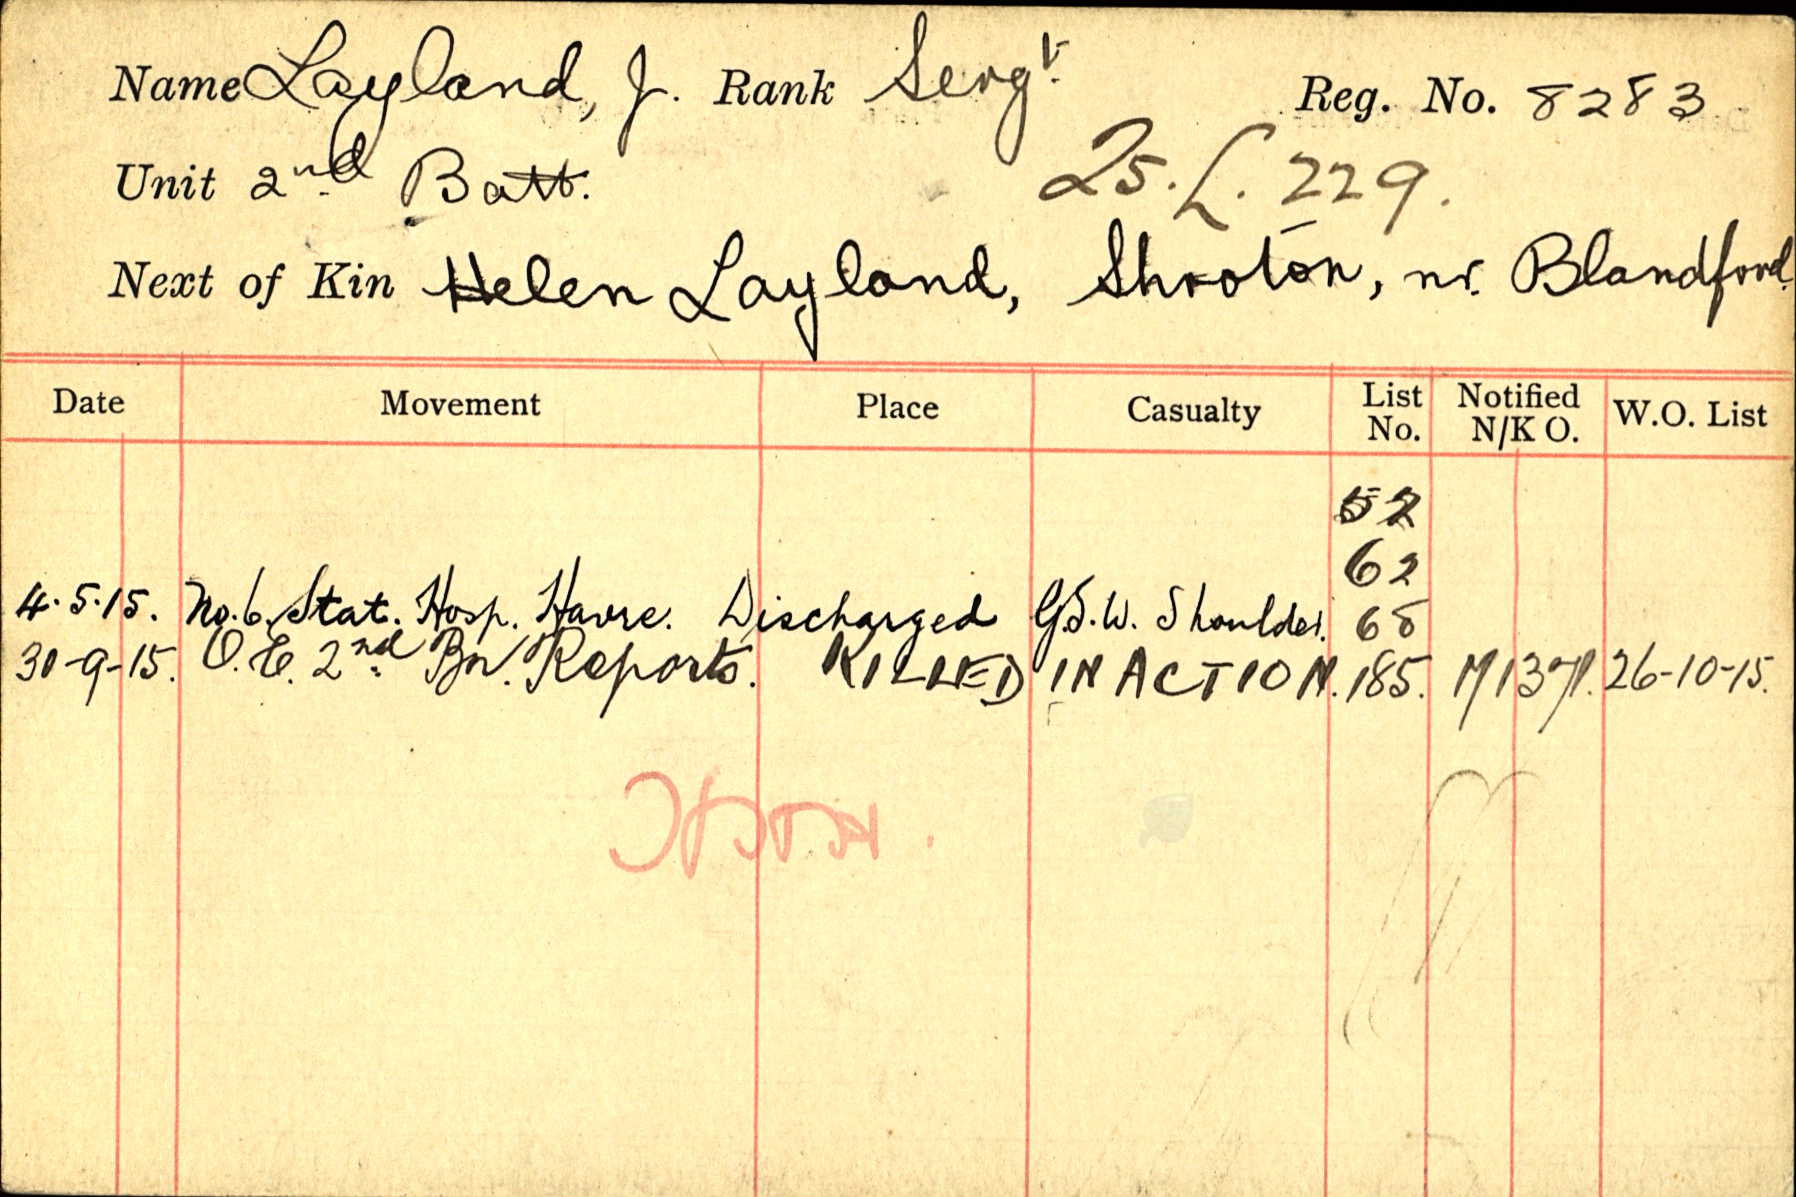 Name Layland, J. Rank Sergt. Reg. No. 8283
Unit 2nd Batt. 25.L.229.
Next of Kin Helen Layland, Shroton, nr. Blandford.
Date Movement Place Casualty List No. Notified N/K O. W.O. List
52
62
4.5.15. No.6. Stat. Hosp. Havre. Discharged G.S.W. Shoulder. 68
30-9-15. O.C. 2nd Bn. Reports. KILLED IN ACTION. 185. 26-10-15.